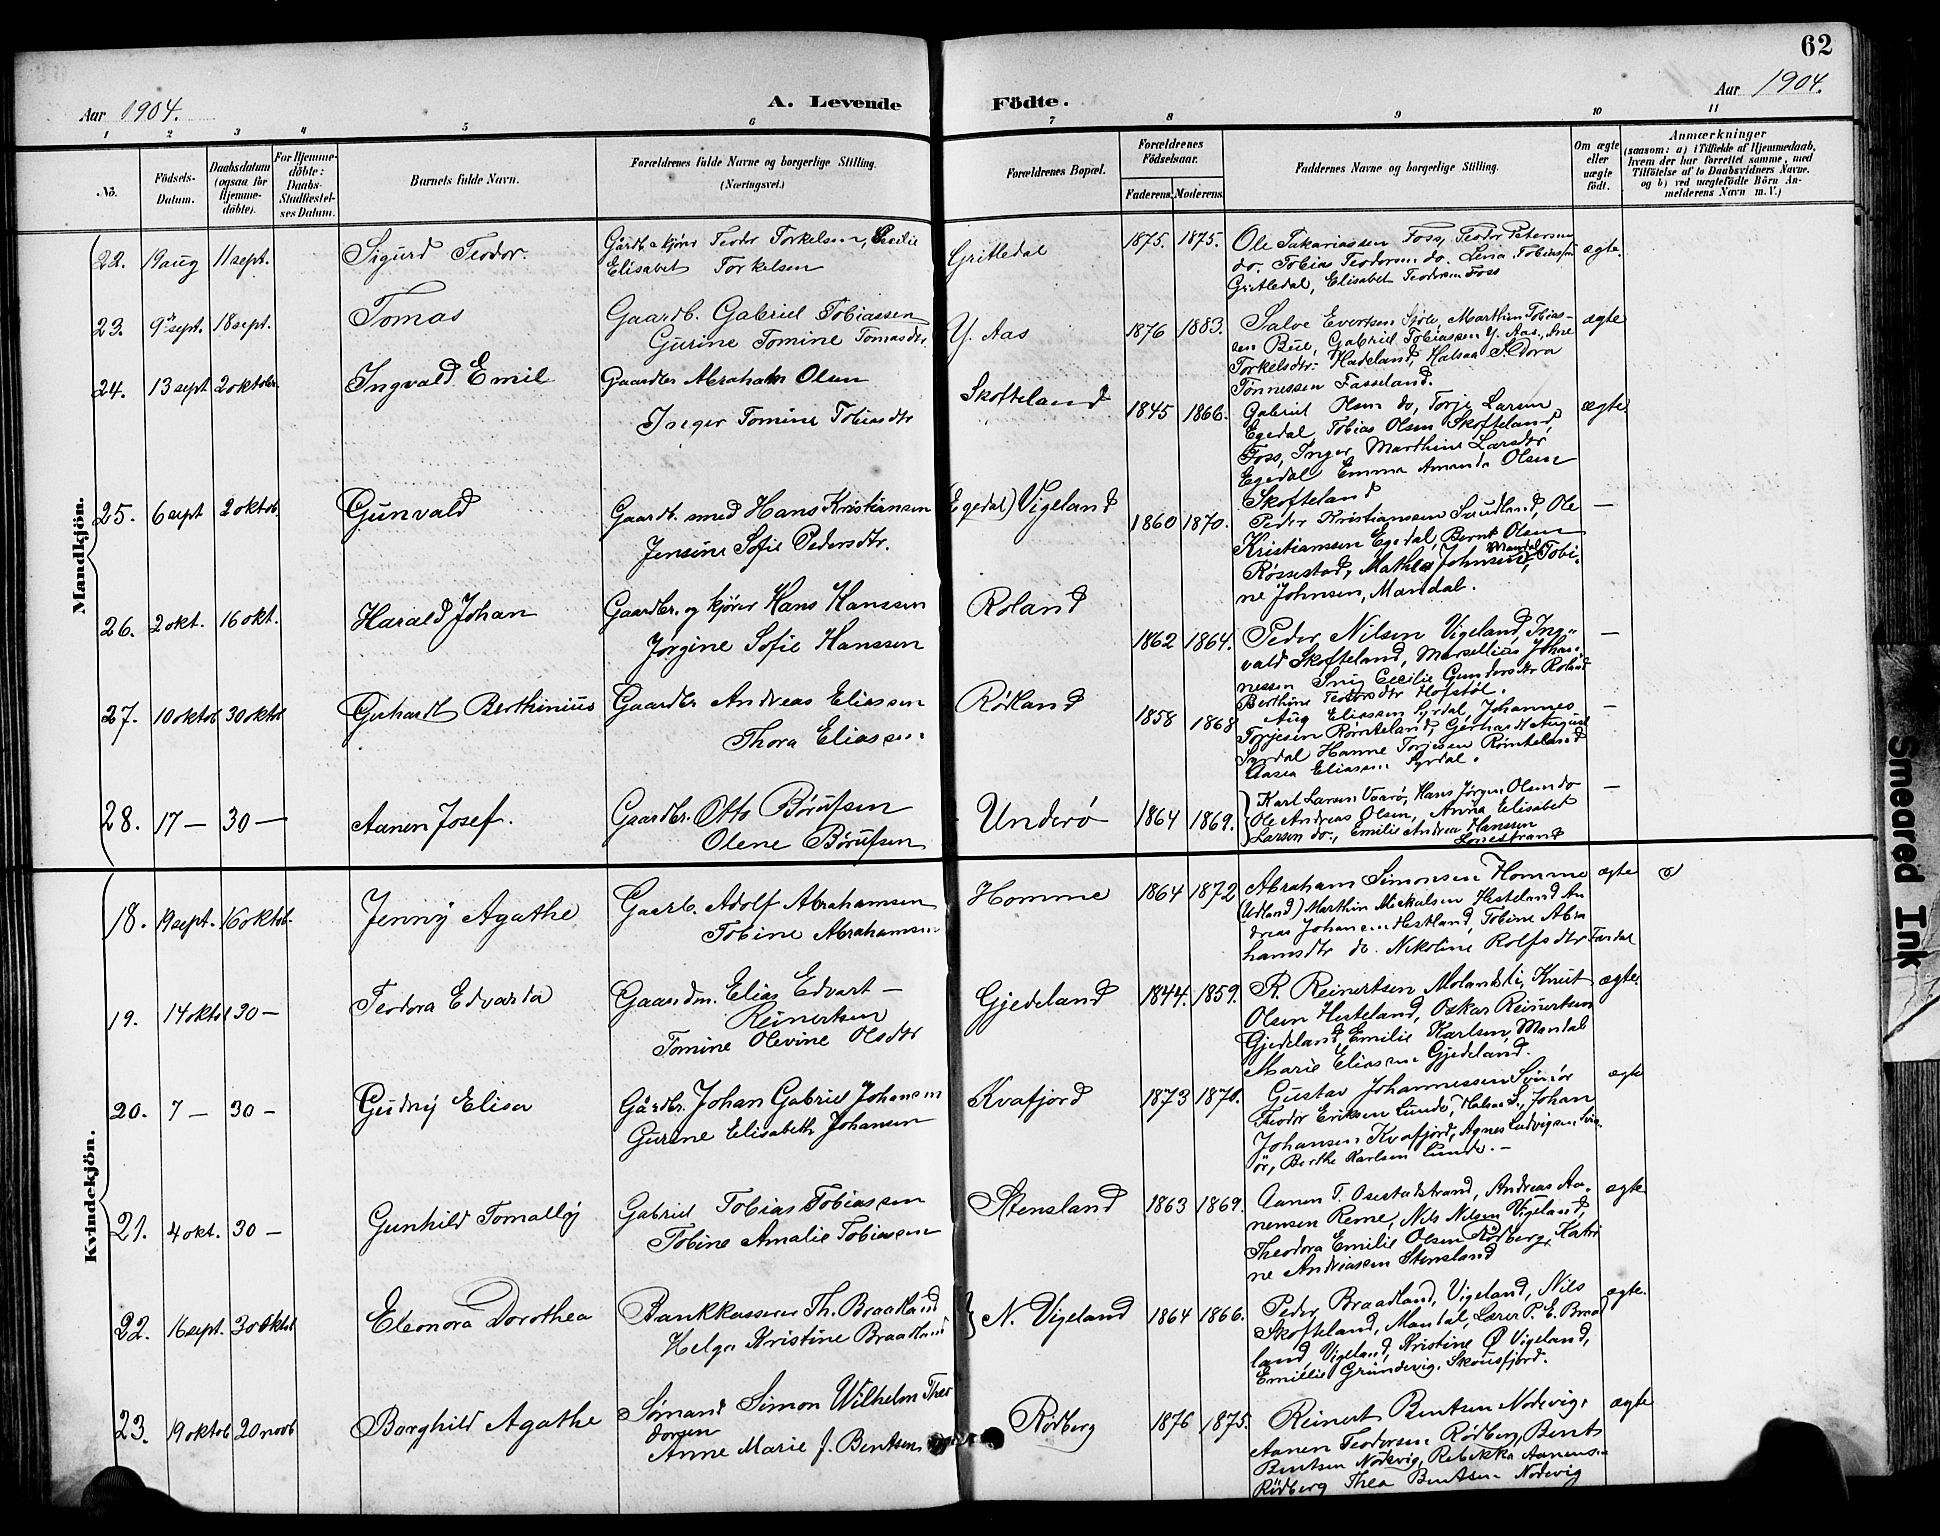 62
Aar 1904.
A. Levende Födte.
Aar 1904.
1 2 3 4 5 6 7 8 9 10 11
No.
Födsels-Datum.
Daabsdatum (ogsaa for Hjemme-döbte).
For Hjemme-döbte: Daabs-Stadfæstel-ses Datum.
Barnets fulde Navn.
Forældrenes fulde Navne og borgerlige Stilling.
(Næringsvei.)
Forældrenes Bopæl.
Forældrenes Födselsaar.
Faderens. Moderens.
Faddernes Navne og borgerlige Stilling.
Om ægte eller uægte födt.
Anmærkninger
(saasom: a) i Tilfælde af Hjemmedaab,
hvem der har forrettet samme, med
Tilföielse af to Daabsvidners Navne,
og b) ved uægtefödte Börn An-
melderens Navn m. V.)
Mandkjön.
22. 19 aug 11 sept. Sigurd Teodor.
Gårdb. skjöns Teodor Torkelsen, Cecilie
Elisabet Torkelsen
Gritledal 1875. 1875.
Ole Sakariassen Foss, Teodor Petersen
do. Tobias Teodorsen do. Lena Tobiassen
Gritledal, Elisabet Teodorsen Foss
ægte.
23. 9 sept. 18 sept. Tomas
Gaardb. Gabriel Tobiassen
Gurine Tomine Tomasdtr.
Y. Aas 1876 1883.
Salve Evertsen Marthin Tobias-
sen Bue, Gabriel Tobiassen Y. Aas, Ane
Torkelsdtr. Hadeland, Halsaa
Tønnessen Fasseland.
ægte
24. 13 sept 2 oktobr. Ingvald Emil
Gaardbr Abraham Olsen
Inger Tomine Tobiasdtr
Skofteland 1845 1866.
Gabriel Olsen do, Torje Larsen
Egedal, Tobias Olsen Skofteland,
Foss, Inger Marthine Larsdtr
Egedal Emma Amanda Olsen
Skofteland
ægte
25. 6 sept 2 oktob. Gunvald
Gaardb. smed Hans Kristiansen
Jensine Sofie Pedersdtr.
(Egedal) Vigeland 1860 1870.
Peder Kristianssen Ole
Kristianssen Egedal, Bernt Olsen
Røssestad, Mathea Johnsen, Mandal, Tobi-
ne Johnsen, Mandal.
—
26. 2 okt. 16 okt. Harald Johan
Gaardbr. og kjører Hans Hanssen
Jørgine Sofie Hanssen
Roland 1862 1864.
Peder Nilsen Vigeland, Ing-
vald Skofteland, Marsellius Johan-
nessen Cecilie Gundersdtr Roland
Berthine Teodorsdtr Hofstøl.
—
27. 10 oktob 30 oktob Gerhardt Berthinius
Gaardbr Andreas Eliassen
Thora Eliassen
1858 1868
Aug Eliassen Syrdal, Johannes
Torjesen Rømteland, Gerhardt August
Syrdal Hanne Torjesen Rømteland
Aasea Eliassen Syrdal.
—
28. 17 — 30 — Aanen Josef.
Gaardbr. Otto Børufsen
Olene Børufsen
Underö 1864 1869.
Karl Larsen Vaarö, Hans Jørgen Olsen do
Ole Andreas Olsen, Anna Elisabet
Larsen do., Emilie Andrea Hanssen
Lonestrand
—
Kvindekjön.
18. 19 sept. 16 oktob. Jenny Agathe
Gaarb. Adolf Abrahamsen
Tobine Abrahamsen
Homme 1864 1872
Abraham Simonsen Homme
(Udland) Marthin Mickalsen Hesteland An
dreas Johansen Hestland, Tobine Abra
hamsdtr do. Nikoline Rolfsdtr Fardal
ægte
19. 14 oktob 30 — Teodora Edvarda
Gaardm. Elias Edvart —
Reinertsen
Tomine Olevine Olsdtr
Gjedeland 1844. 1859.
R. Reinertsen Knut
Olsen Hesteland, Oskar Reinertsen
Gjedeland, Emilie Karlsen, Mandal
Marie Eliassen Gjedeland.
ægte.
20. 7 — 30 — Gudny Elisa
Gårdbr. Johan Gabriel Johansen
Gurine Elisabeth Johansen
Kvafjord 1873 1870.
Gustav Johannessen Svinör
Teodor Eriksen Lunde, Halsaa S., Johan
Johansen Kvafjord, Agnes Ludvigsen, Svin-
ör, Berthe Karlsen Lunde. —
ægte
21. 4 okt. 30 — Gunhild Tomally
Gabriel Tobias Tobiassen
Tobine Amalie Tobiassen
Stensland 1863 1869.
Aanen T. Osestadstrand, Andreas Aa-
nensen Reme, Nils Nilsen Vigeland,
Theodora Emilie Olsen Rödberg, Katri
ne Andreassen Stensland
ægte
22. 16 sept. 30 oktob Eleonora Dorothea
Bankkasserer Th. Braadland
Helga Kristine Braadland
N. Vigeland 1864 1866.
Peder Braadland, Vigeland, Nils
Skofteland, Mandal, Lærer P. E. Braad
land, Vigeland, Kristine Ø Vigeland,
Emilie Grundevig. Skousfjord.
ægte.
23. 19 oktob 20 novb Borghild Agathe
Sømand Simon Wilhelm Theo
dorsen
Anne Marie J. Bentsen
Rödberg 1876 1875.
Reinert Bentsen Nodevig,
Aanen Teodorsen Rødberg, Bent
Bentsen Nodevig, Rebekka Aanensen
Rödberg Thea Bentsen Nodevig
ægte
Smeared Ink